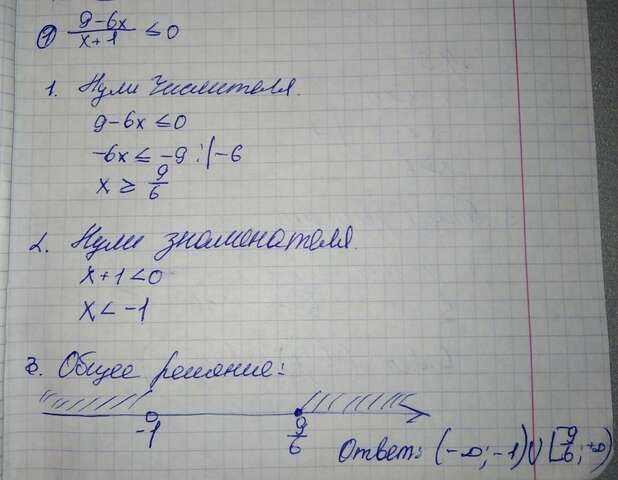 ① (9-6x)/(x+1) ≤ 0
1. Нули числителя.
9-6x ≤ 0
-6x ≤ -9 :|-6
x ≥ 9/6
2. Нули знаменателя.
x+1 < 0
x < -1
3. Общее решение:
-1 9/6
Ответ: (-∞; -1) ∪ [9/6; +∞)